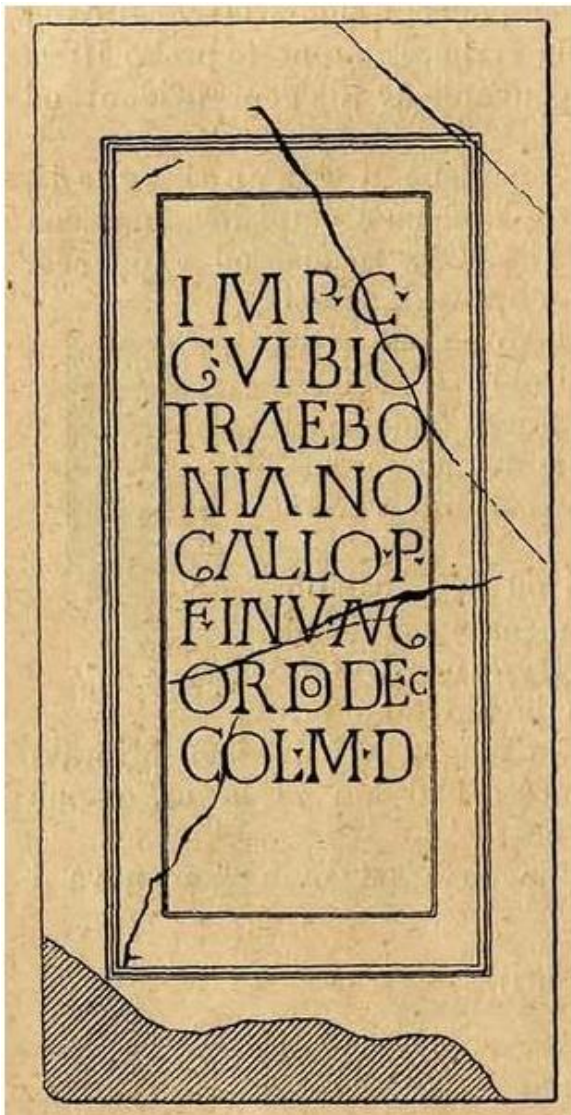 IMP·C·
G·VIBIO
TRAEBO
NIANO
GALLO·P·
F·INVAVG
ORDODEC
COL·M·D